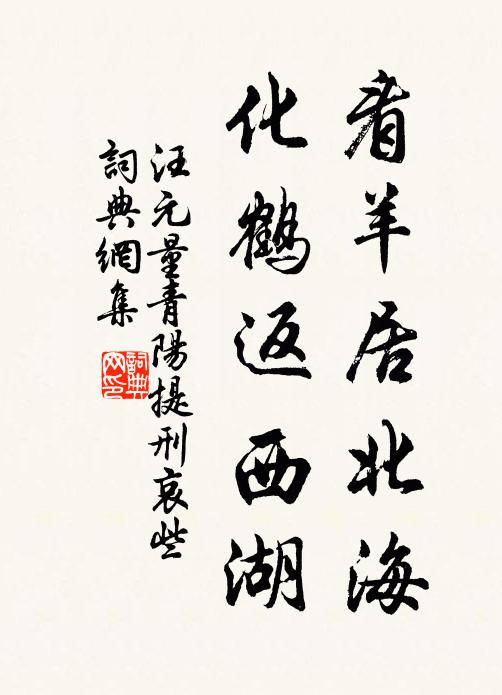 看羊居北海
化鶴返西湖
汪元量青陽提刑哀些
詞典網集
詞典网印